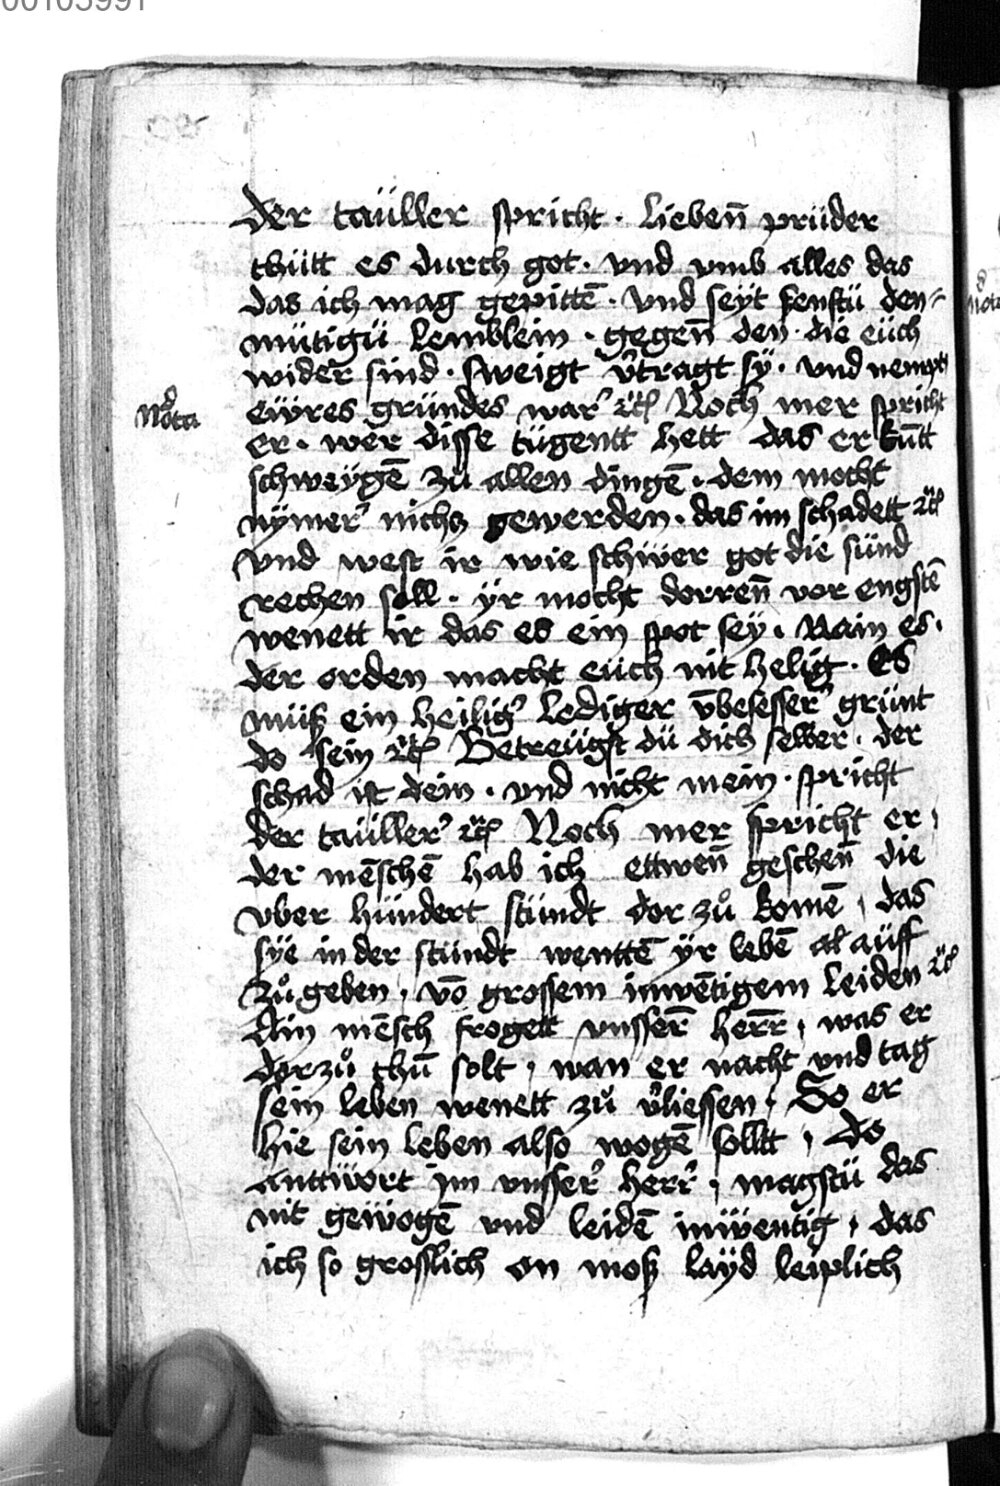 00103991
Der taüller spricht · lieben̄ prüder
thütt es durch got · vnd vmb alles das
das ich mag gepittē · vnd seÿt senftü den=
mütigü lemblein · gegen̄ den · die eüch
wider sind · sweigt v̉tragt sÿ · vnd nempt
Nota
eẅres gründes war ꝛc̃ Noch mer spricht
er · wer disse tügentt hett das er kūtt
schweÿgē zů allen dingē · dem mocht
nÿmer nichß gewerden · das im schadett ꝛc̃
vnd west ir wie schẅer got die sünd
rechen soll · ÿr mocht dorren̄ vor engstē
wenett ir das es ein spot seÿ · Nain es ·
der orden macht eüch nit helig · Es
müß ein heilig̉ lediger v̄besesser̉ grünt
do sein ꝛc̃ Betreügst dü dich selber · der
schad ist dein · vnd nicht mein · spricht
der taüller̉ ꝛc̃ Noch mer spricht er ,
der mēschē hab ich ettwen̄ geschen̄ die
vber hündert stündt dor zů komē , das
sÿe in der stündt wenttē ÿr lebē al aüff
zů geben , vō grossem inwētigem leiden ꝛc̃
Ain mēsch frogett vnsser̄ herr̄ , was er
dorzů thū solt , wan er nacht vnd tag
sein leben wenett zů v̉liessen , So er
hie sein leben also wogē solltt , do
anttẅort im vnsser̉ herr̉ , magstü das
nit geẅogē vnd leidē inẅentig , das
ich so grosslich on moß laÿd leiplich